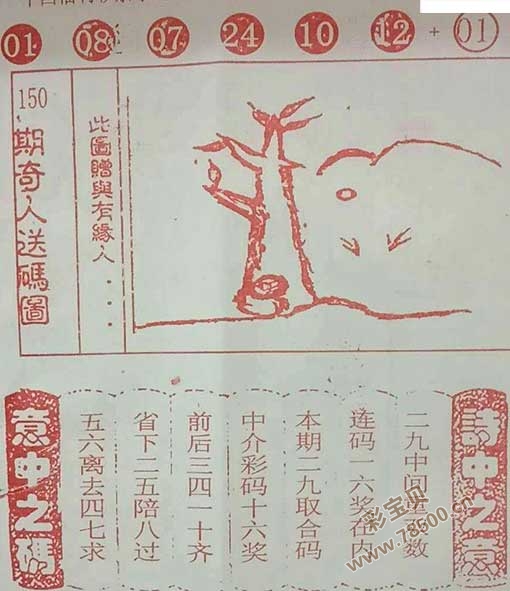 01 08 07 24 10 12 + 01
150
期奇人送碼圖
此圖贈與有緣人...
詩中之意
二九中间 数
连码一六奖在内
本期二九取合码
中介彩码十六奖
前后三四一十齐
省下二五陪八过
五六离去四七求
意中之碼
彩宝贝
www.78500.cn